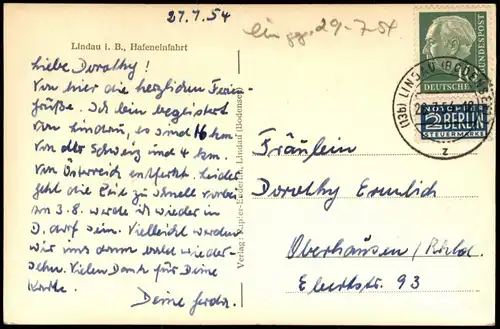 27.7.54
eingeg. 29-7-54
Lindau i. B., Hafeneinfahrt
Liebe Dorothy!
Von hier die herzlichen Ferien-
grüße. Ich bin begeistert
von Lindau, es sind 16 km
von der Schweiz und 4 km.
von Österreich entfernt. Leider
geht die Zeit zu schnell vorbei
am 3.8. werde ich wieder in
D.dorf sein. Vielleicht werden
wir uns dann bald wieder-
sehn. Vielen Dank für Deine
Karte.
Deine
Verlag: Lindau (Bodensee)
DEUTSCHE BUNDESPOST
(13b) LINDAU (BODENSEE)
z
NOTOPFER
2 BERLIN
STEUERMARKE
Fräulein
Dorothy Ermlich
Oberhausen / Rhld.
Ebertstr. 93